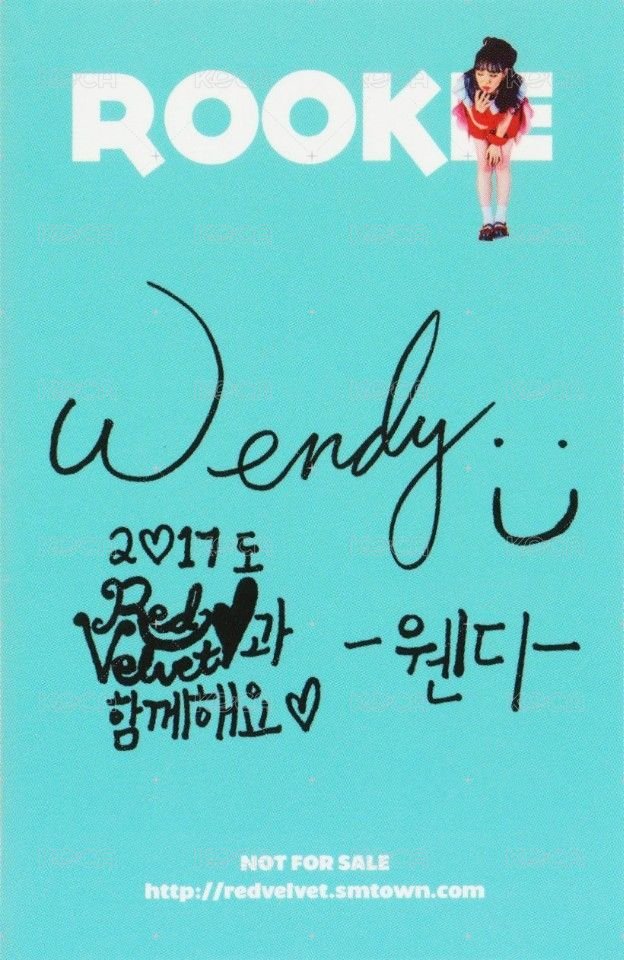 ROOKIE
Wendy
2♡17 도
Red
Velvet♥과
함께해요♡
-웬디-
NOT FOR SALE
http://redvelvet.smtown.com